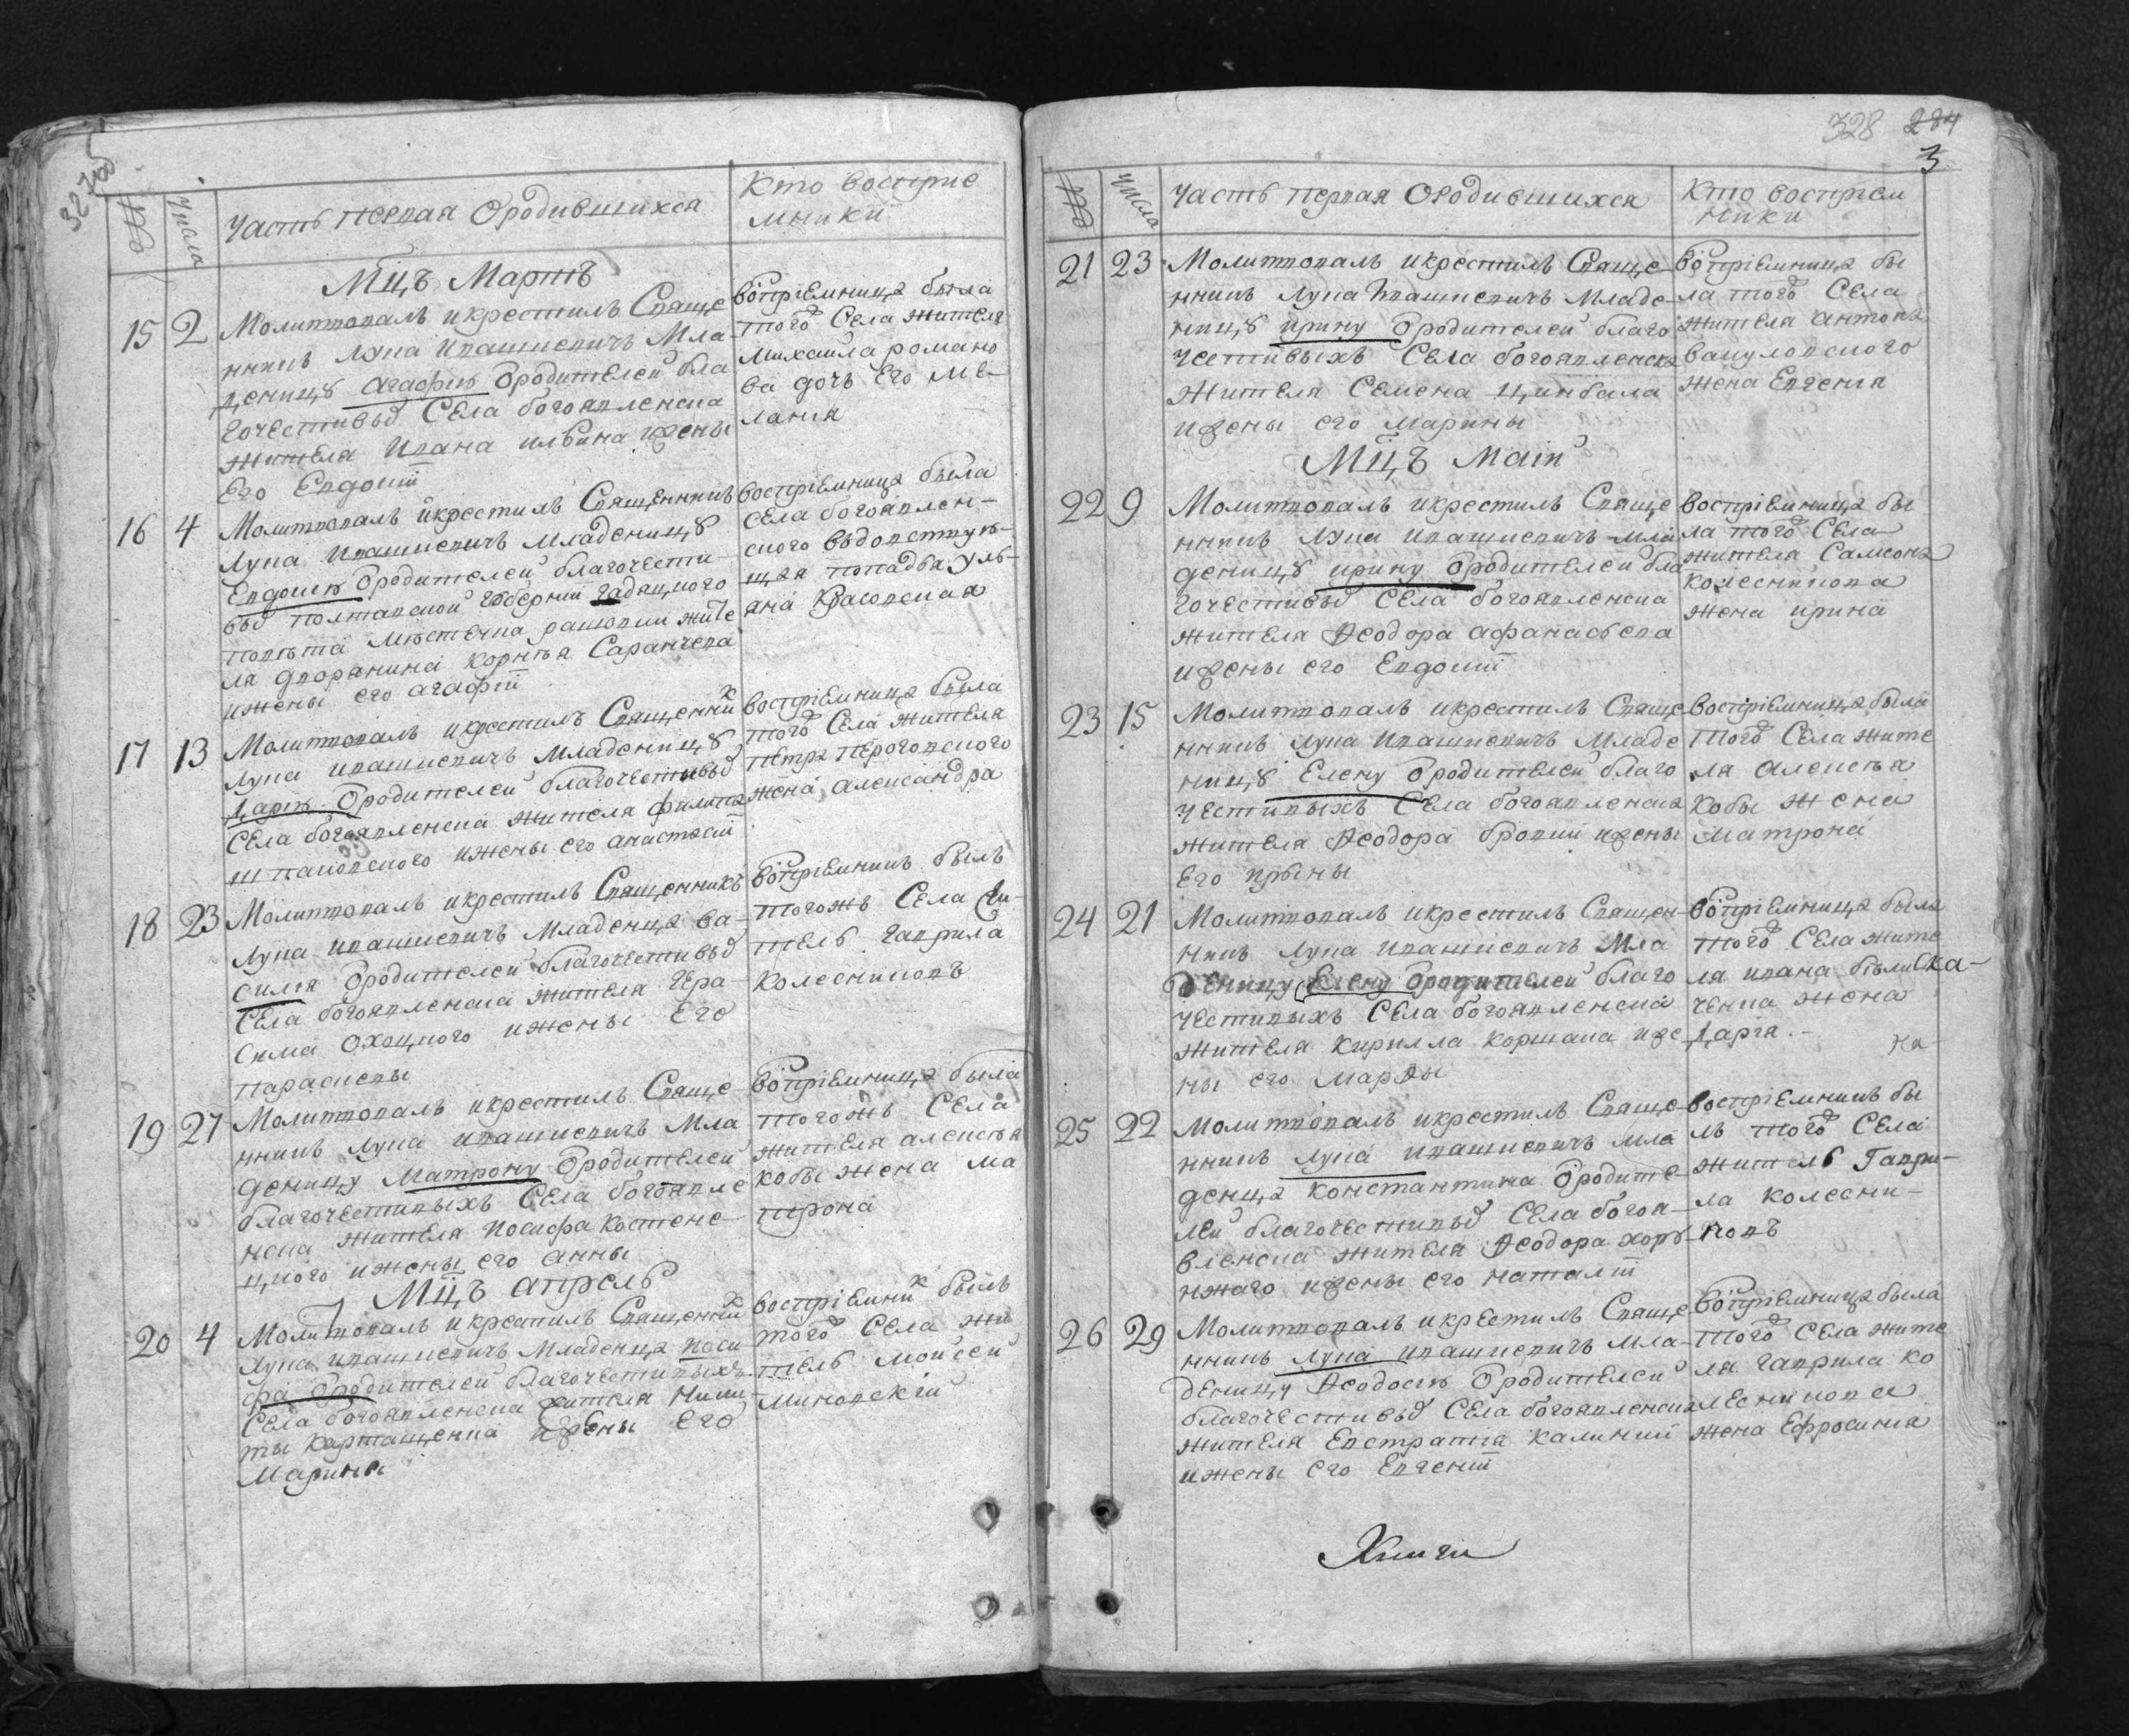 327 об
№
числа
Часть первая Ородившихся
Кто восприе
мники
Мцъ Мартъ
15 2 Молитвовалъ икрестилъ Свяще
нникъ Лука Ивашкевичъ Мла
деницѸ Агафію Ородителей бла
гочестивыхъ Села богоявленска
жителя Ивана ильина ижены
Его Евдокіи
воспріемница была
того Села жителя
Михайла романо
ва дочь Его Ме-
ланія
16 4 Молитвовалъ икрестилъ Священникъ
Лука Ивашкевичъ младеницѸ
Евдокію Ородителей благочести-
выхъ полтавской Гѹберніи гадяцкого
повѣта мѣстечка рашовки жите
ля дворянина корнѣя Саранчева
ижены его агафіи
воспріемница была
Села богоявлен-
ского вдовствую-
щая попадья Уль-
яна Красовская
17 13 Молитвовалъ икрестилъ Священник
Лука ивашкевичъ младеницѸ
Дарію Ородителей благочестивыхъ
Села богоявленска жителя филипа
шпаковского ижены его анастасіи
воспріемница была
того Села жителя
петра перогов­ского
жена александра
18 23 Молитвовалъ икрестилъ Священникъ
Лука ивашкевичъ Младенца ва-
силія Ородителей благочестивыхъ
Села богоявленска жителя Гера-
сима Охоцкого ижены Его
параскевы
воспріемникъ былъ
тогожъ Села жи-
тель гаврила
колесниковъ
19 27 Молитвовалъ икрестилъ Свяще-
нникъ Лука ивашкевичъ Мла
деницу Матрону Ородителей
благочестивыхъ Села богоявле
нска жителя иосифа костене-
цкого ижены его анны
воспріемница была
тогожъ Села
жителя алексѣя
кобы жена ма
трона
Мцъ апрель
20 4 Молитвовалъ икрестилъ Священник
Лука ивашкевичъ Младенца иоси
фа Ородителей благочестивыхъ
Села богоявленска жителя Ники-
ты карташенка ижены Его
Марины
воспріемник былъ
того Села жи
тель мойсей
миновскій
328 284
3
№
числа
Часть первая Ородившихся
Кто восприем
ники
21 23 Молитвовалъ икрестилъ Свяще-
нникъ Лука Ивашкевичъ Младе-
ницѸ ирину Ородителей благо
честивыхъ Села богоявленска
жителя Семена цинбала
ижены его марины
воспріемница бы
ла того Села
жителя антона
вакуловского
жена Евгенія
Мцъ Маій
22 9 Молитвовалъ икрестилъ Свяще
нникъ Лука ивашкевичъ мла
деницѸ ирину Ородителей бла
гочестивыхъ Села богоявленска
жителя Ѳеодора афанасьева
ижены его Евдокіи
воспріемница бы
ла того Села
жителя Самсона
колесникова
жена ирина
23 15 Молитвовалъ икрестилъ Свяще
нникъ Лука Ивашкевичъ Младе
ницѸ Елену Ородителей благо
честивыхъ Села богоявленска
жителя Ѳеодора бровки ижены
Его ирыны
воспріемница была
того Села жите
ля алексѣа
кобы жена
матрона
24 21 Молитвовалъ икрестилъ Священ-
никъ Лука ивашкевичъ Мла
деницу Елену Ородителей благо
честивыхъ Села богоявленска
жителя кирилла коршака иже
ны его марѳы
воспріемница была
того Села жите
ля ивана
ченка жена
Дарія
25 22 Молитвовалъ икрестилъ Свяще-
нникъ Лука ивашкевичъ мла
денца константина Ородите-
лей благочестивыхъ Села богоя-
вленска жителя Ѳеодора хорѹ
нжаго ижены его наталіи
воспріемникъ бы
лъ того Села
житель Гаври-
ла колесни-
ковъ
26 29 Молитвовалъ икрестилъ Свяще
нникъ Лука ивашкевичъ мла-
деницу Ѳеодосію Ородителей
благочестивыхъ Села богоявленска
жителя Евстратія калинки
ижены его Евгеніи
воспріемница была
того Села жите
ля гаврила ко
лесникова
жена Ефросинія
Книги